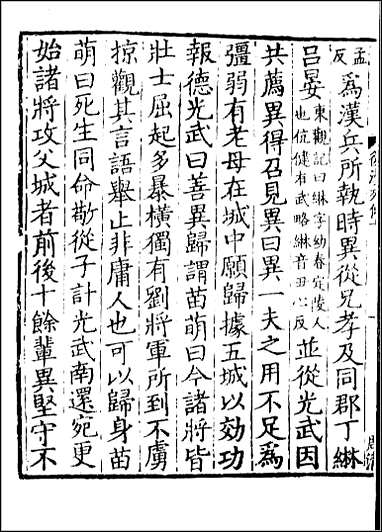 孟反為漢兵所執時異從兄孝及同郡丁綝
呂晏東觀記曰綝字幼春定陵人也伉健有武略綝音丑心反並從光武因
共薦異得召見異曰異一夫之用不足為
彊弱有老母在城中願歸據五城以効功
報德光武曰善異歸謂苗萌曰今諸將皆
壯士屈起多暴橫獨有劉將軍所到不虜
掠觀其言語舉止非庸人也可以歸身苗
萌曰死生同命敬從子計光武南還宛更
始諸將攻父城者前後十餘輩異堅守不